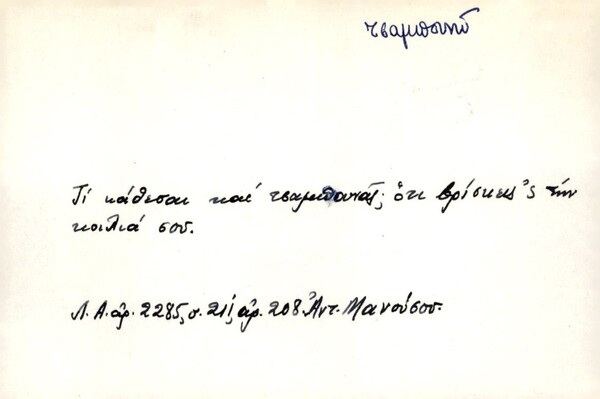 τσαμπουνῶ
Τί κάθεσαι καί τσαμπουνᾷς; ὅτι βρίσκεις 'ς τήν
κοιλιά σου.
Λ. Α. ἀρ. 2285, σ. 21, ἀρ. 208 Ἀντ. Μανούσου.